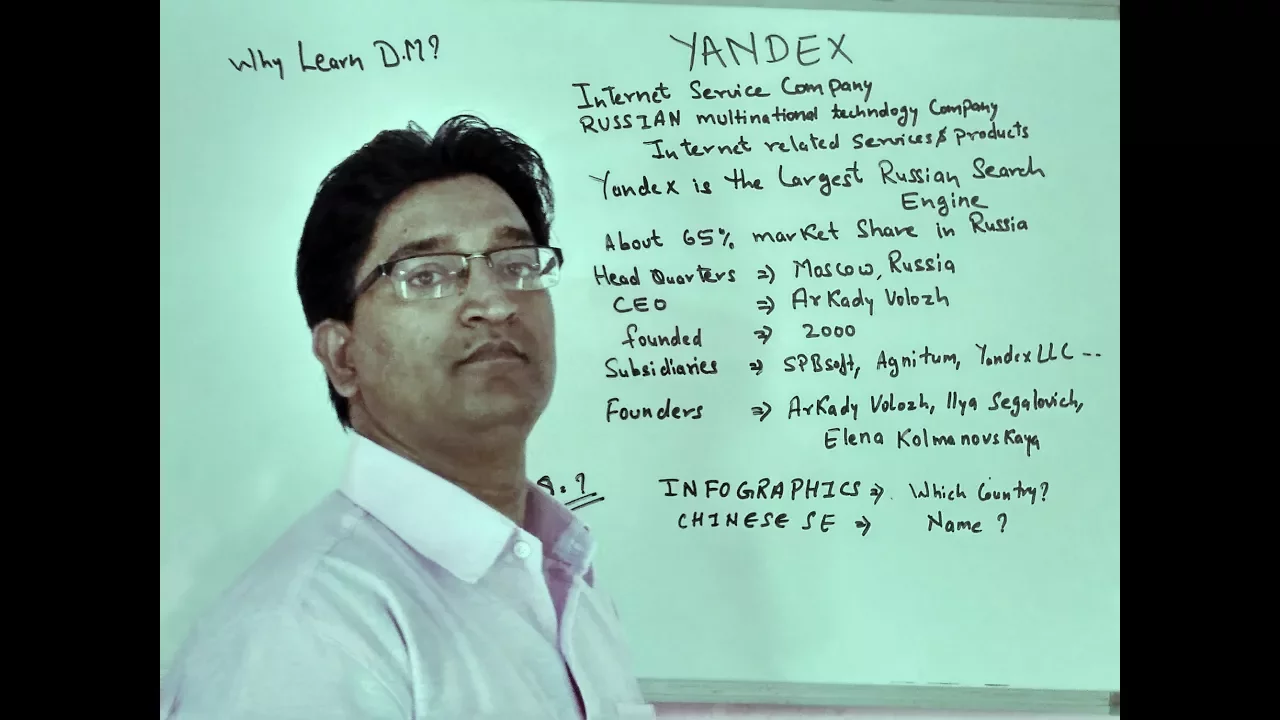 Why Learn D.M?
YANDEX
Internet Service Company
RUSSIAN multinational technology Company
Internet related Services & Products
Yandex is the Largest Russian Search
Engine
About 65% market Share in Russia
Head Quarters ⇒ Moscow, Russia
CEO ⇒ Arkady Volozh
founded ⇒ 2000
Subsidiaries ⇒ SPBsoft, Agnitum, Yandex LLC --
Founders ⇒ Arkady Volozh, Ilya Segalovich,
Elena Kolmanovskaya
INFOGRAPHICS ⇒ Which Country?
CHINESE SE ⇒ Name ?